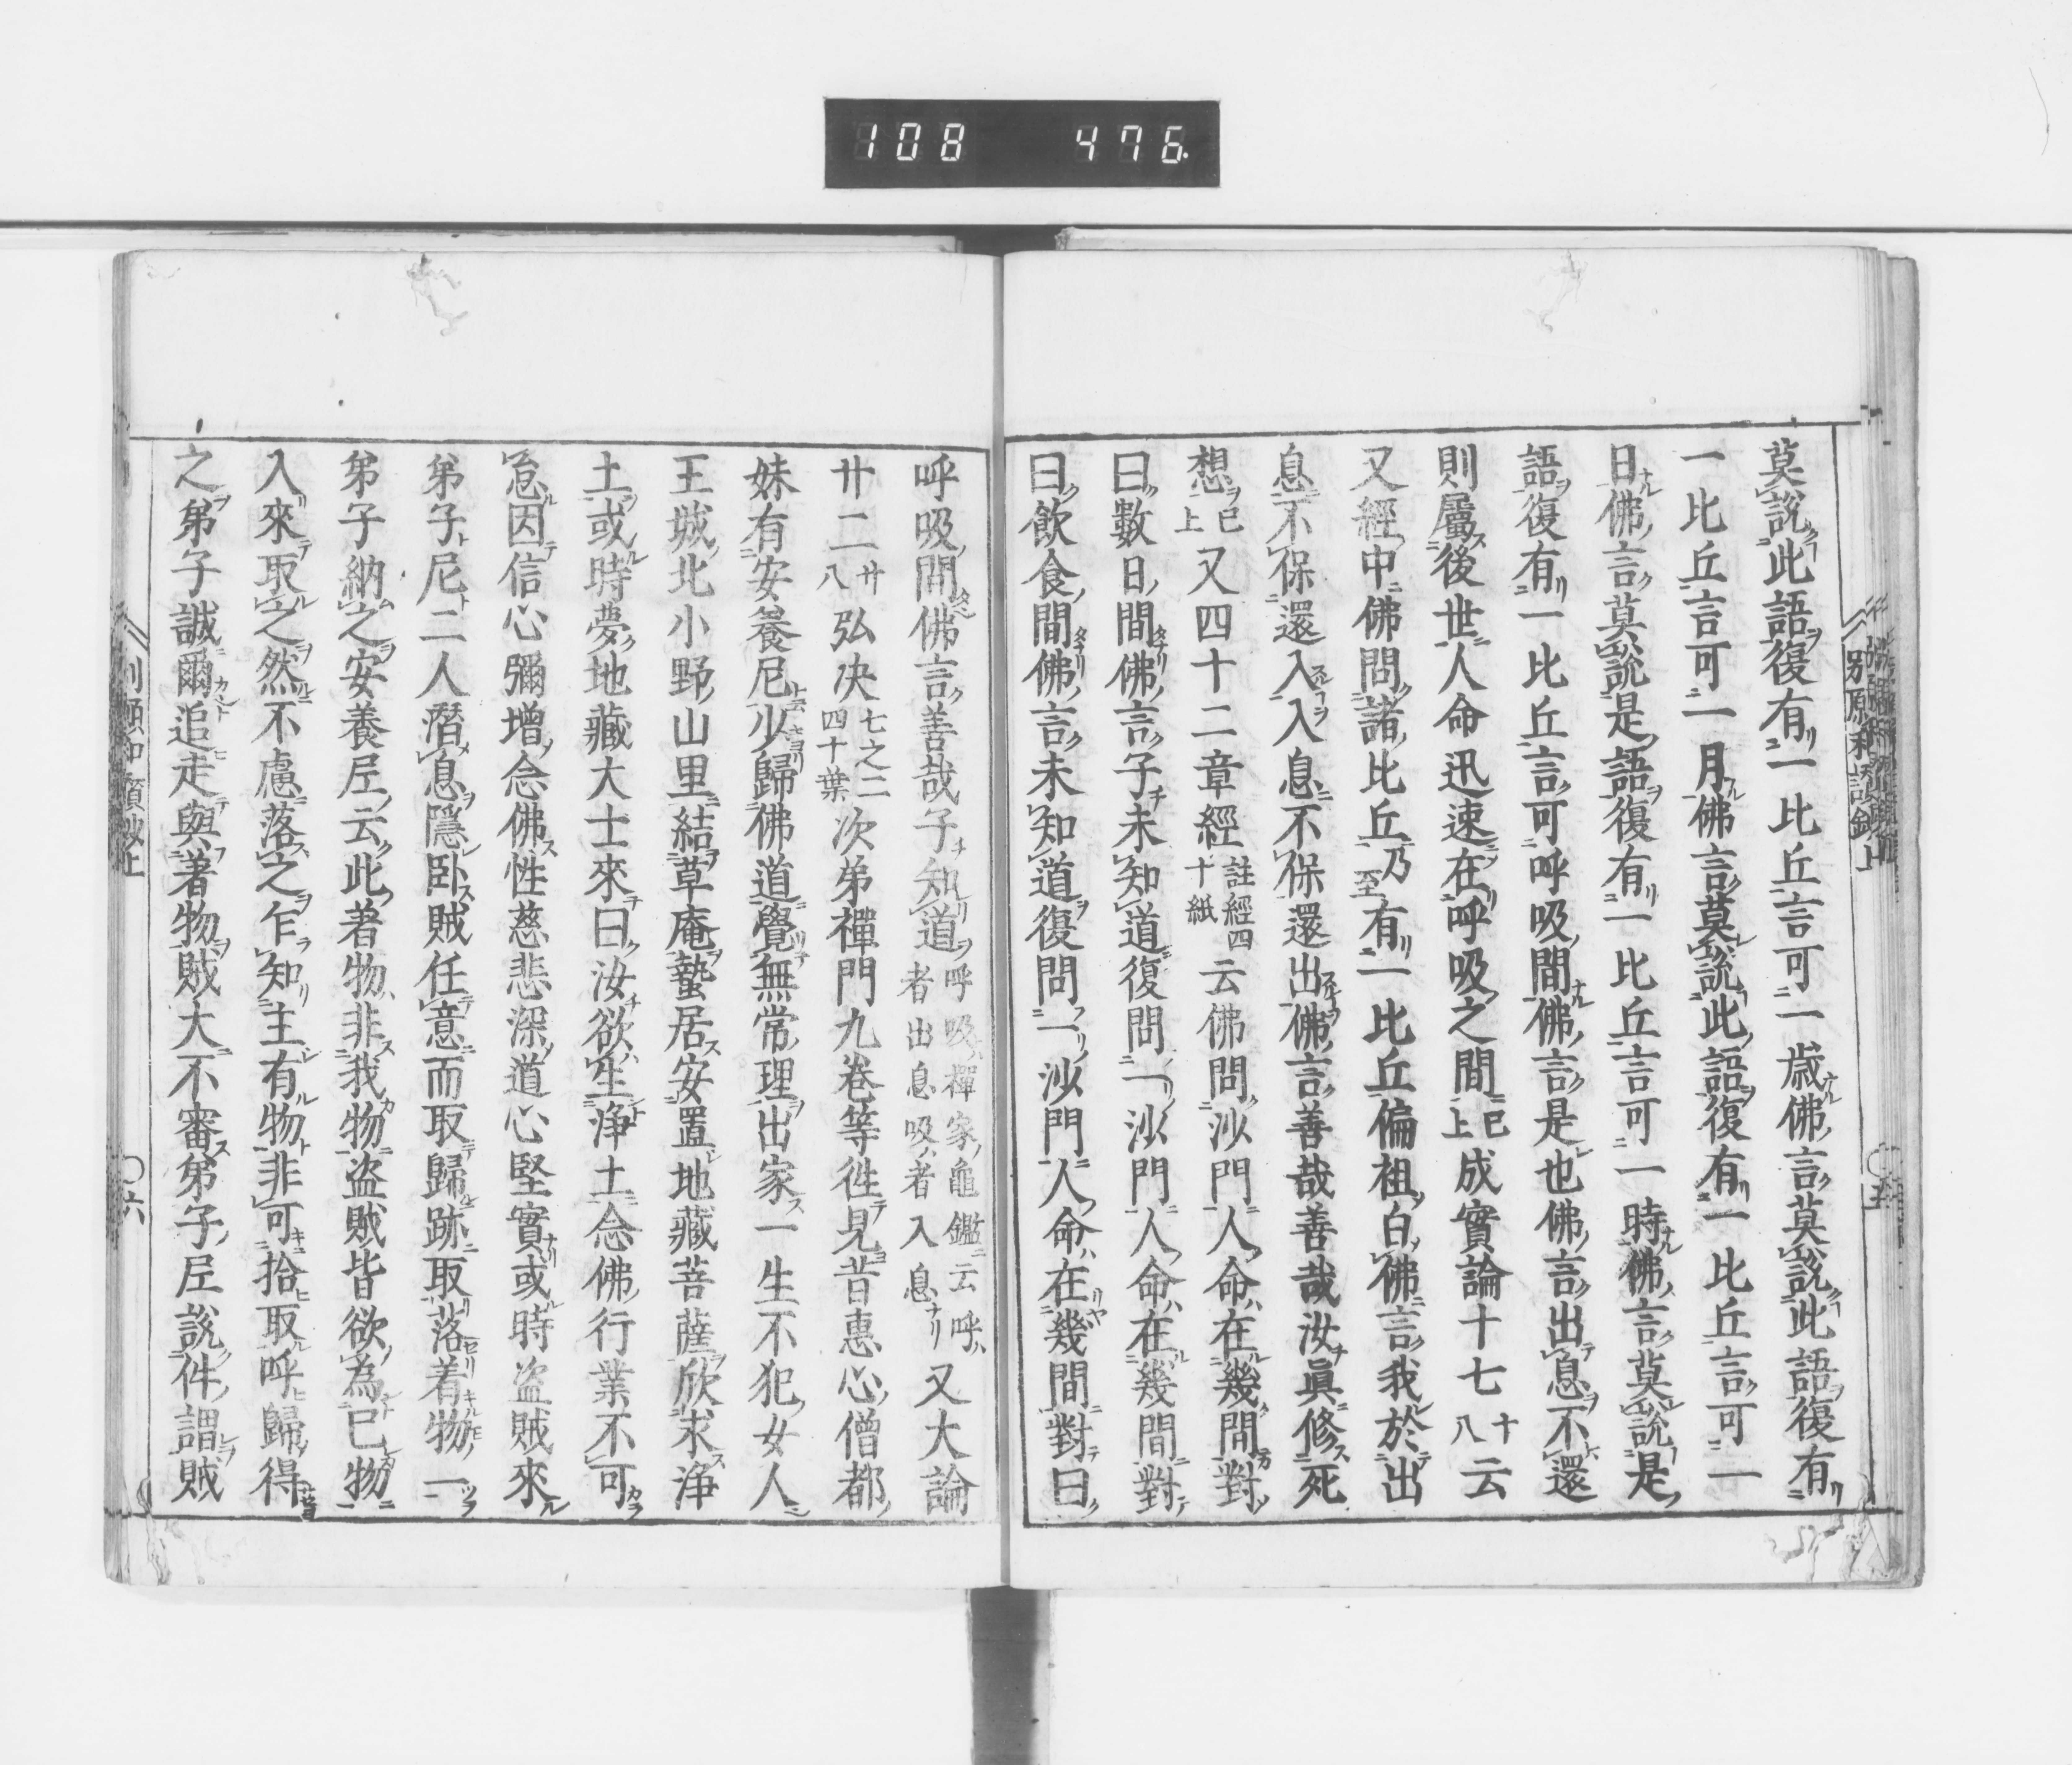 108 476.
莫説此語復有一比丘言可一歳佛言莫説此語復有
一比丘言可一月佛言莫説此語復有一比丘言可一
日佛言莫説是語復有一比丘言可一時佛言莫説是
語復有一比丘言可呼吸間佛言是也佛言出息不還
則屬後世人命迅速在呼吸之間已上成實論十七十八云
又經中佛問諸比丘乃至有一比丘偏袒白佛言我於出
息不保還入入息不保還出佛言善哉善哉汝眞修死
想已上又四十二章經註經四十紙云佛問沙門人命在幾間對
曰數日間佛言子未知道復問一沙門人命在幾間對
曰飲食間佛言未知道復問一沙門人命在幾間對曰
呼吸間佛言善哉子知道呼吸禪家龜鑑云呼者出息吸者入息又大論
廿二廿八弘决七之二四十葉次第禪門九卷等徃見昔惠心僧都
妹有安養尼少歸佛道覺無常理出家一生不犯女人
王城北小野山里結草庵蟄居安置地藏菩薩欣求浄
土或時夢地藏大士來曰汝欲生浄土念佛行業不可
怠因信心彌增念佛性慈悲深道心堅實或時盗賊來
弟子尼二人潛息隱卧賊任意而取歸跡取落着物一
弟子納之安養尼云此著物非我物盗賊皆欲為已物
入來取之然不慮落之乍知主有物非可拾取呼歸得
之弟子誠爾追走與著物賊大不審弟子尼説件謂賊
六